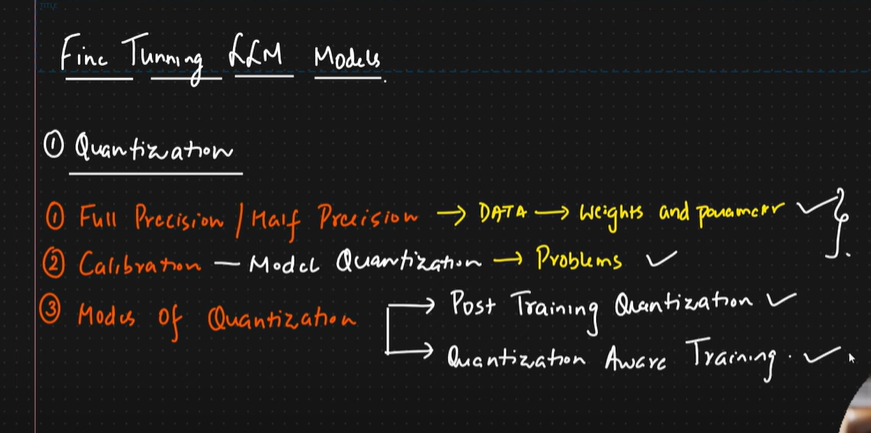 Fine Tunning LLM Models.
① Quantization
① Full Precision / Half Precision → DATA → Weights and parameter ✓
② Calibration — Model Quantization → Problems ✓
③ Modes Of Quantization
→ Post Training Quantization ✓
→ Quantization Aware Training. ✓